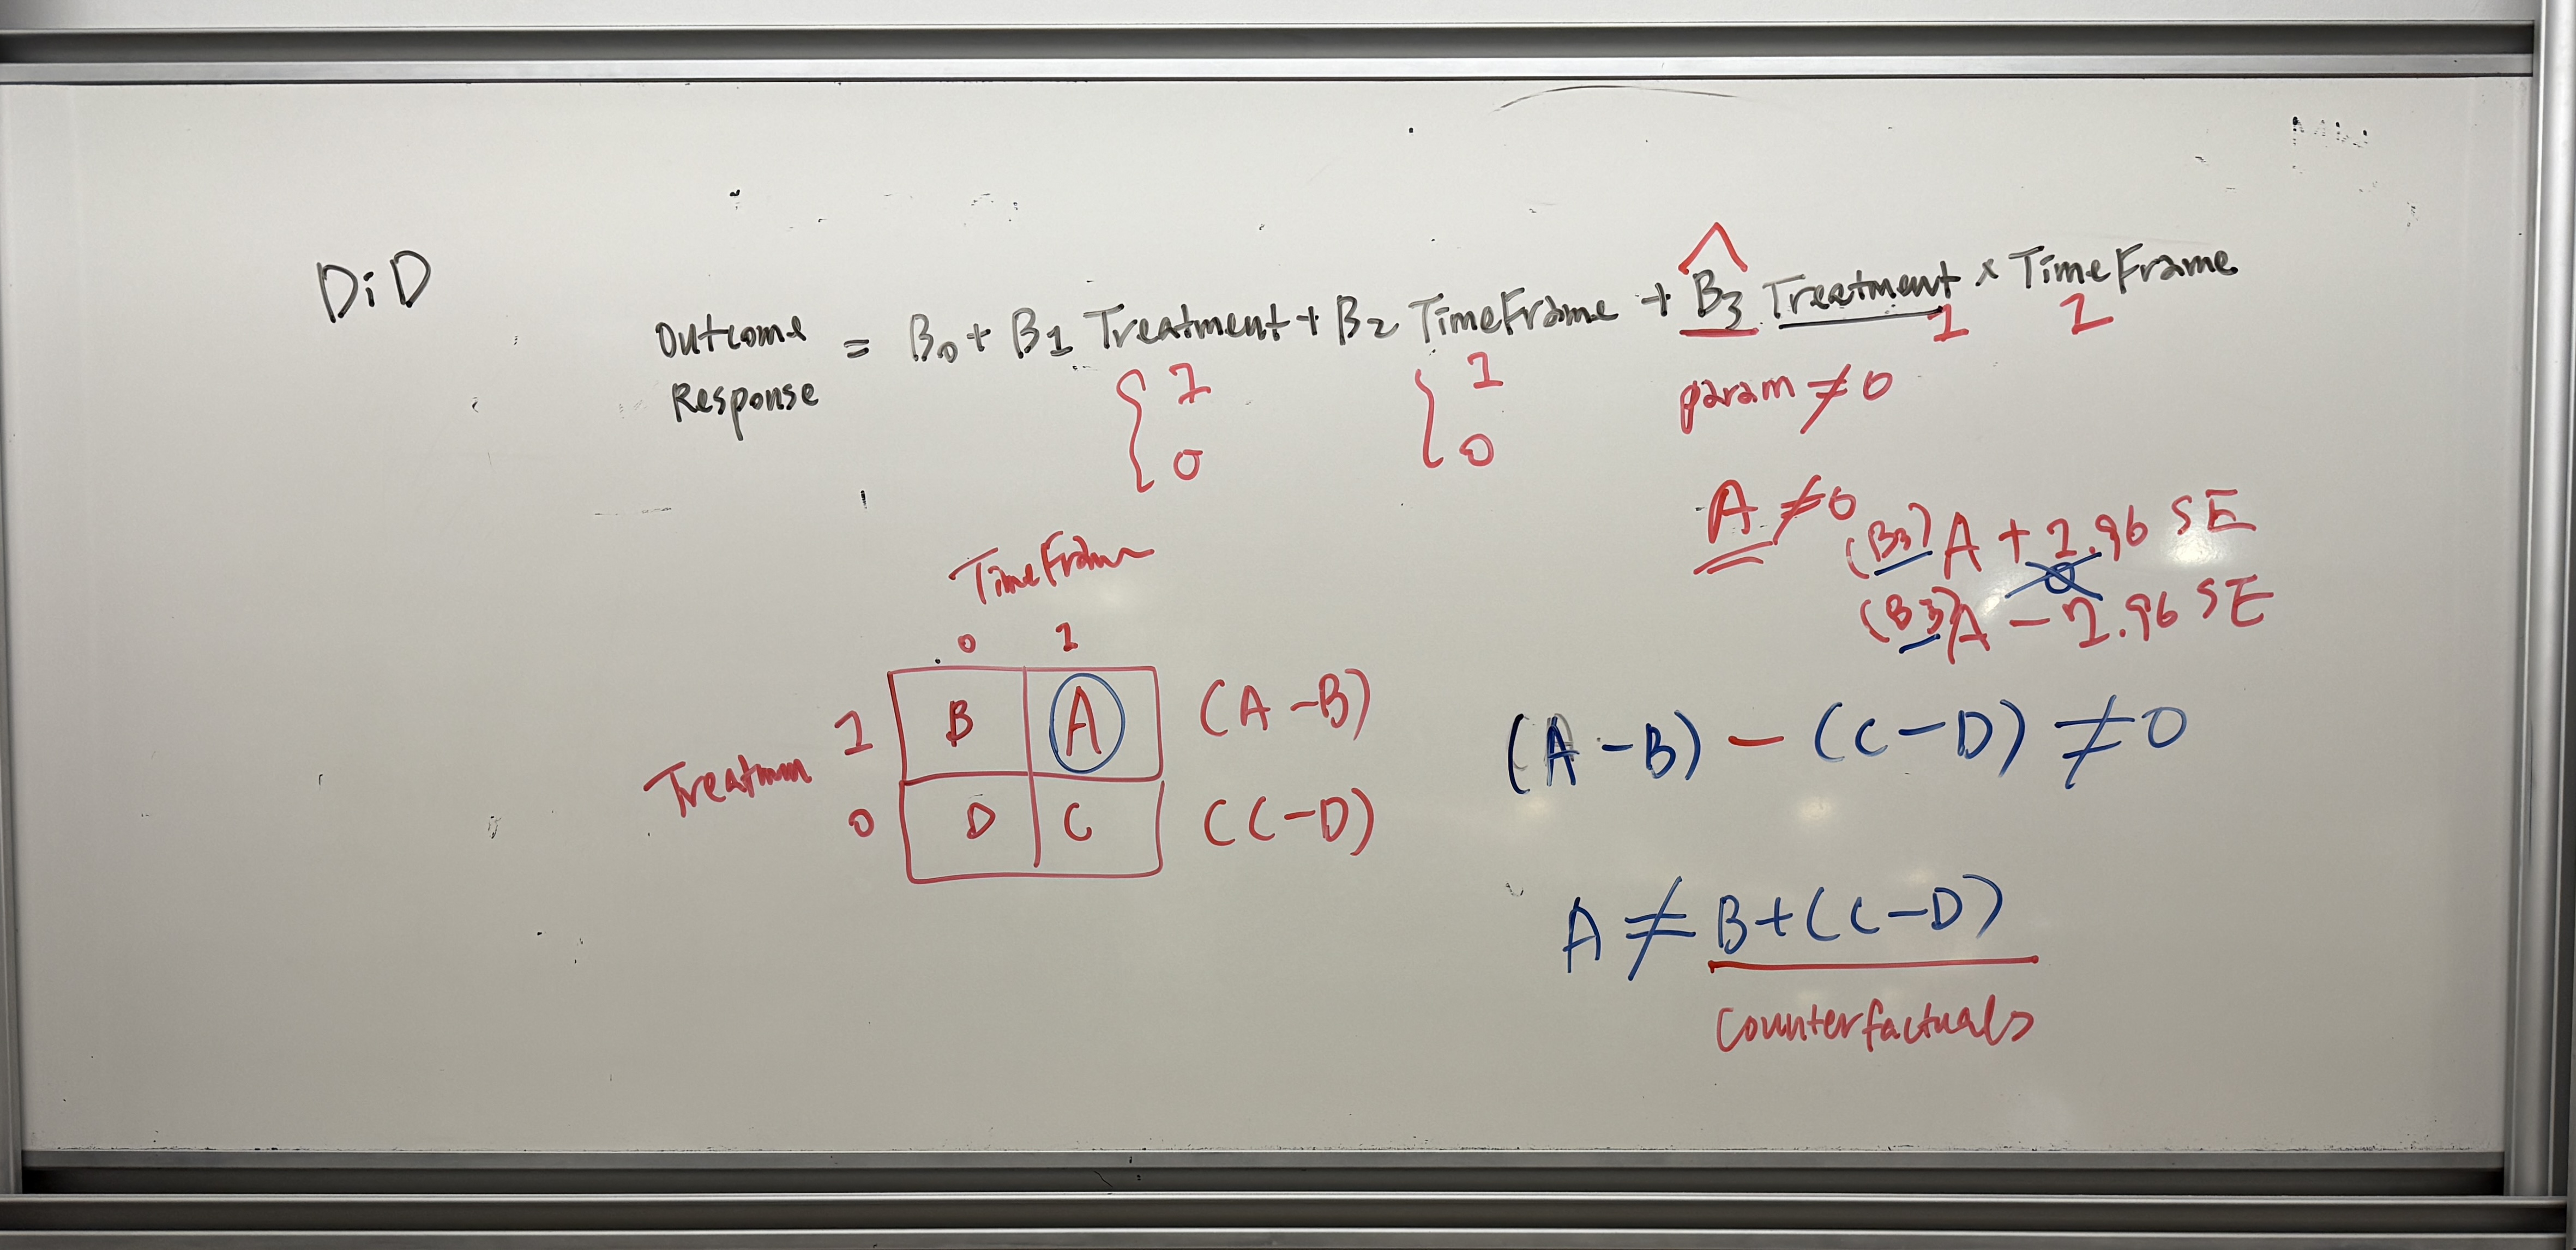 DiD
Outcome Response = B0 + B1 Treatment + B2 TimeFrame + B̂3 Treatment × TimeFrame
{ 1 0
{ 1 0
1 1
param ≠ 0
A ≠ 0
(B3) A + 1.96 SE
0
(B3) A - 1.96 SE
TimeFram
0 1
Treatmm 1 B A (A - B)
0 D C (C - D)
(A - B) - (C - D) ≠ 0
A ≠ B + (C - D)
Counterfactuals